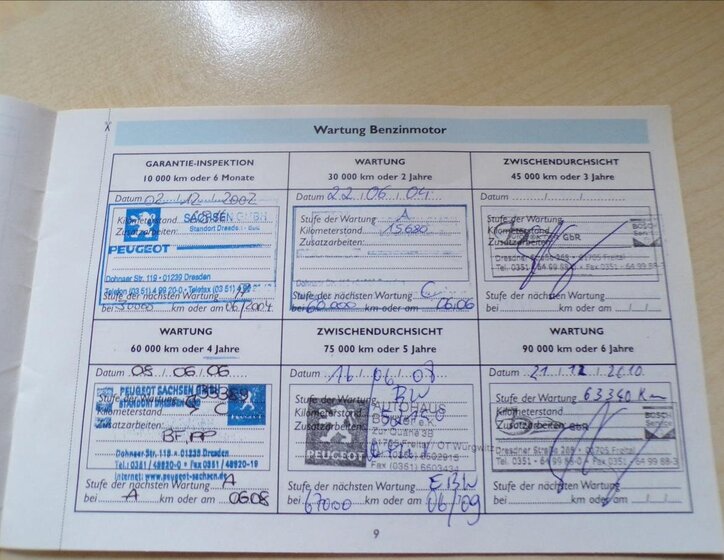 Wartung Benzinmotor
GARANTIE-INSPEKTION
10 000 km oder 6 Monate
Datum 02.12.2002
Kilometerstand
SACHSEN GMBH
Zusatzarbeiten:
Standort Dresden
PEUGEOT
Dohnaer Str. 119 · 01239 Dresden
Telefon (03 51) 4 99 20-0 · Telefax (03 51) 4
Stufe der nächsten Wartung A
bei 30000 km oder am 06/2004
WARTUNG
30 000 km oder 2 Jahre
Datum 22.06.04
Stufe der Wartung A
Kilometerstand 15680
Zusatzarbeiten:
Stufe der nächsten Wartung C
bei 60.000 km oder am 06.06
ZWISCHENDURCHSICHT
45 000 km oder 3 Jahre
Datum
Stufe der Wartung
Kilometerstand
GbR
BOSCH
Zusatzarbeiten:
Service
Dresdner Straße 269 · 01705 Freital
Tel. 0351 - 64 99 88-0 · Fax 0351 - 64 99 88-
Stufe der nächsten Wartung
bei km oder am
WARTUNG
60 000 km oder 4 Jahre
Datum 08.06.06
PEUGEOT SACHSEN GMBH
Stufe der Wartung C
STANDORT DRESDEN
Kilometerstand
Zusatzarbeiten:
PEUGEOT
BF, PP
Dohnaer Str. 119 · 01239 Dresden
Tel.: 0351 / 48920-0 · Fax 0351 / 48920-19
Internet: www.peugeot-sachsen.de
Stufe der nächsten Wartung A
bei A km oder am 06.08
ZWISCHENDURCHSICHT
75 000 km oder 5 Jahre
Datum 16.06.08
Stufe der Wartung BW
AUTOHAUS
Kilometerstand
Zusatzarbeiten:
Zur Quäne 3B
01705 Freital / OT Wurgwitz
PEUGEOT
Tel. (0351) 6502915
Fax (0351) 6503434
Stufe der nächsten Wartung EBW
bei 67000 km oder am 06/09
WARTUNG
90 000 km oder 6 Jahre
Datum 21.12.2010
Stufe der Wartung 63340 Km
Kilometerstand
BOSCH
Zusatzarbeiten
GbR
Service
Dresdner Straße 269 · 01705 Freital
Tel. 0351 - 64 99 88-0 · Fax 0351 - 64 99 88-3
Stufe der nächsten Wartung
bei km oder am
9